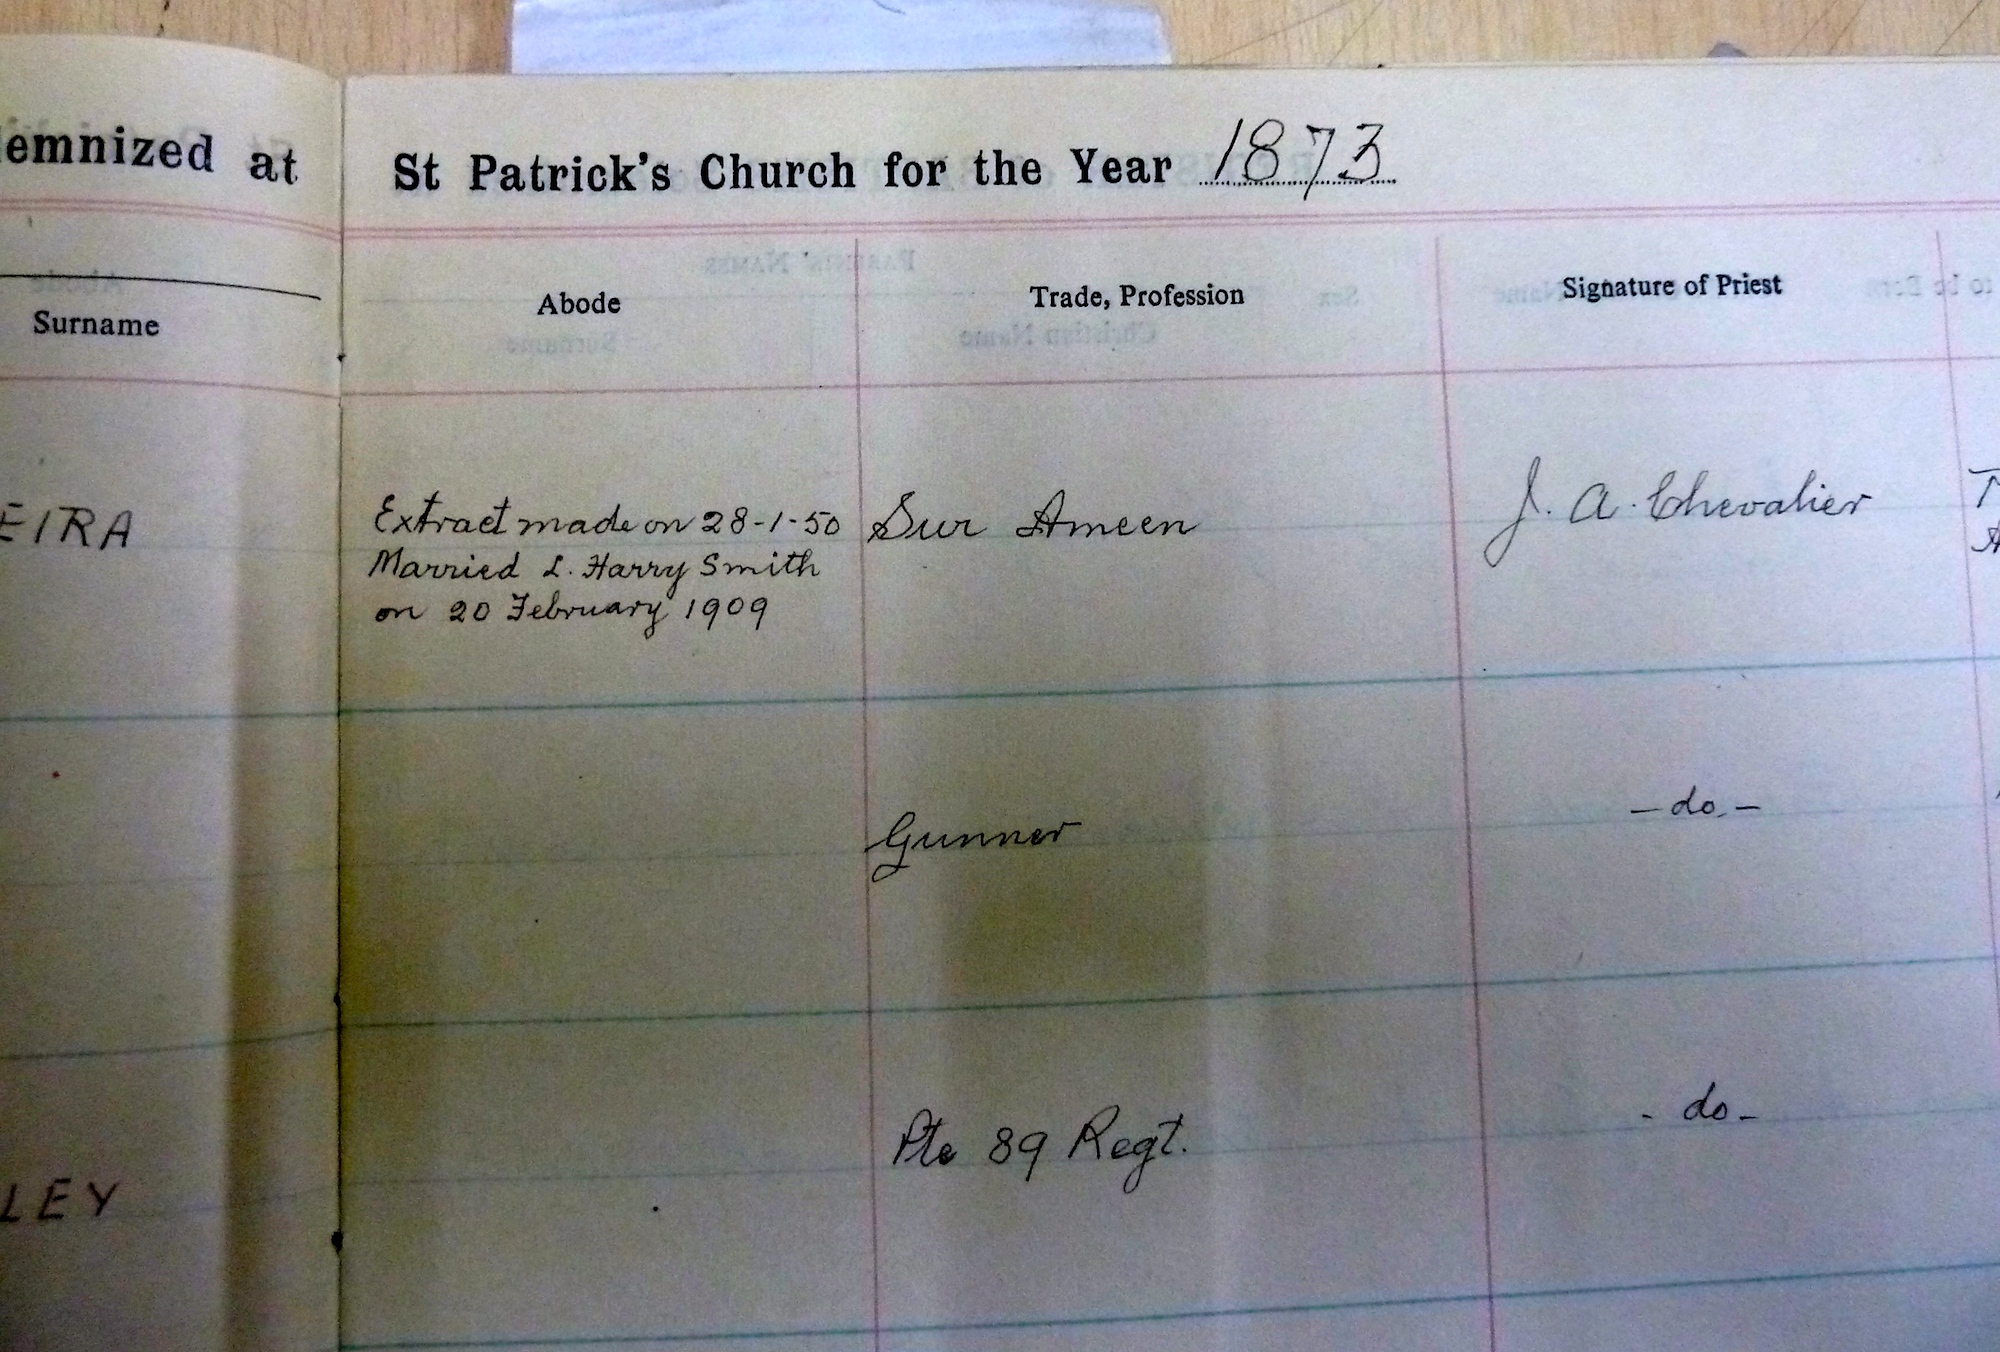 emnized at St Patrick's Church for the Year 1873
Surname
Abode
Trade, Profession
Signature of Priest
EIRA
Extract made on 28-1-50
Married L. Harry Smith
on 20 February 1909
Sur Ameen
J. A. Chevalier
Gunner
- do. -
LEY
Pte 89 Regt.
- do -